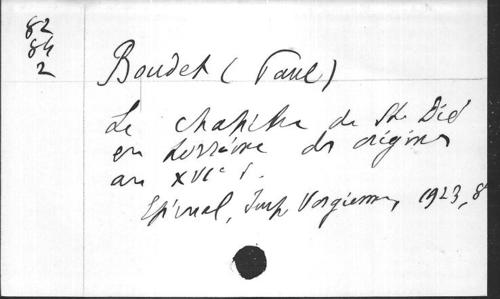 82
84
2
Boudet (Paul)
Le chapitre de St Dié
en Lorraine des origines
au XVIe s.
Epinal, Imp Vosgienne, 1923, 8°